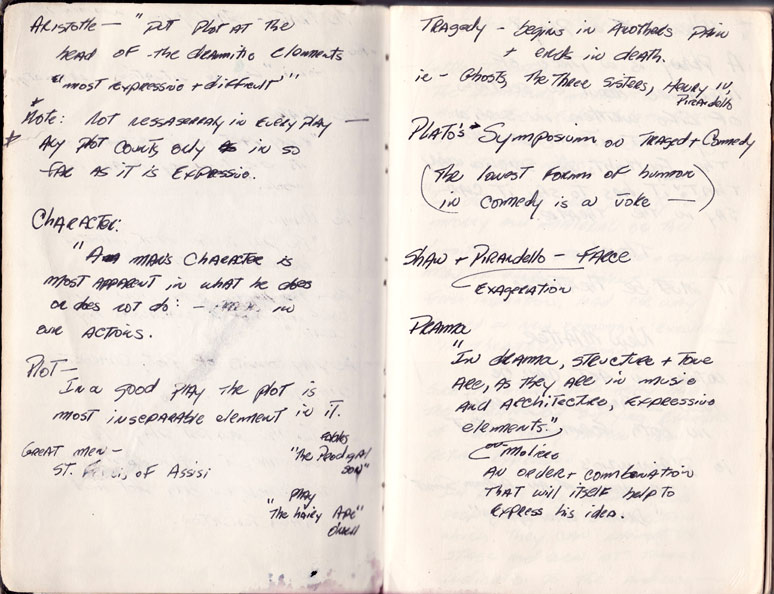 Aristotle — "put plot at the
head of the dramitic elements
"most expressive + difficult""
Note: Not nessaserary in every play —
Any plot counts only as in so
far as it is expressive.
Character:
"A man's character is
most apparent in what he does
or does not do: — in
our actions.
Plot —
In a good play the plot is
most inseparable element in it.
Great men —
St. Francis of Assisi
"The Prodigal
son"
play
"The hairy Ape"
Tragedy — begins in Anothers Pain
+ ends in death.
ie — Ghosts, The Three Sisters, Henry IV,
Pirandello
Plato's Symposium on Traged + Comedy
(The lowest form of humor
in comedy is a joke —)
Shaw + Pirandello — Farce
Exageration
Drama
"In drama, structure + tone
are, as they are in music
and architecture, expressive
elements."
on Moliere
An order + combination
that will itself help to
express his idea.